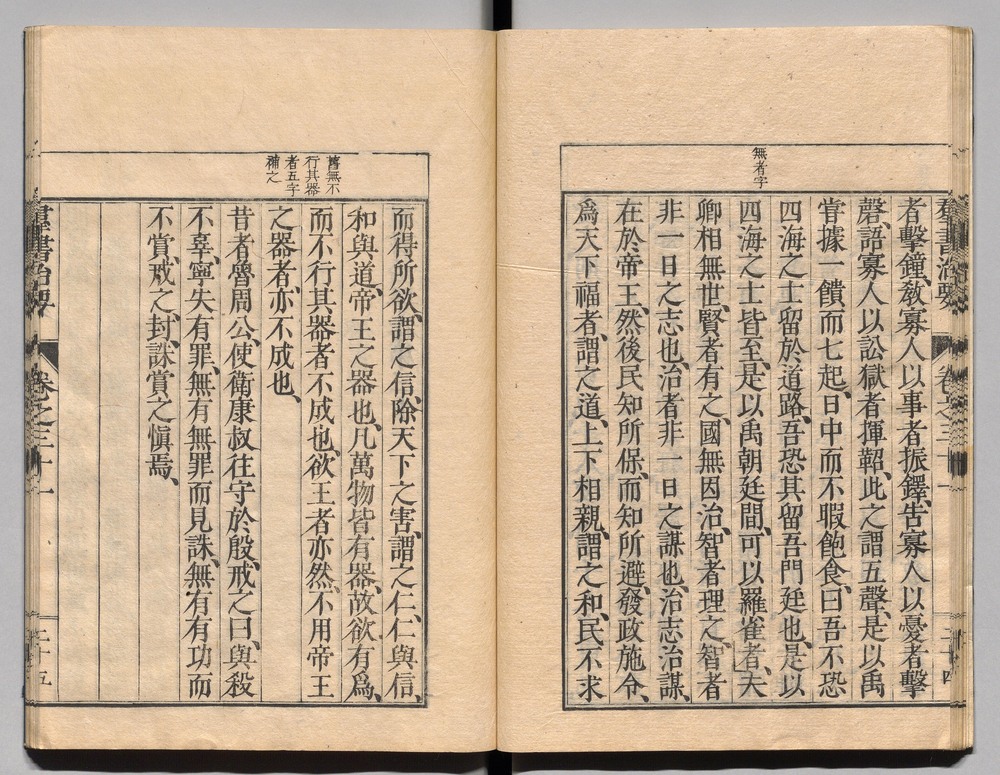 無者字
羣書治要 卷之三十一 二十四
者擊鐘、敎寡人以事者振鐸、告寡人以憂者擊
磬、語寡人以訟獄者揮鞀、此之謂五聲、是以禹
嘗據一饋而七起、日中而不暇飽食、曰吾不恐
四海之士留於道路、吾恐其留吾門廷也、是以
四海之士皆至、是以禹朝廷間、可以羅雀者、大
卿相無世、賢者有之、國無因治、智者理之、智者
非一日之志也、治者非一日之謀也、治志治謀、
在於帝王、然後民知所保、而知所避、發政施令、
爲天下福者、謂之道、上下相親、謂之和、民不求
舊無不
行其器
者五字
補之
而得所欲、謂之信、除天下之害、謂之仁、仁與信、
和與道、帝王之器也、凡萬物皆有器、故欲有爲、
而不行其器者不成也、欲王者亦然、不用帝王
之器者、亦不成也、
昔者魯周公、使衞康叔往守於殷、戒之曰、與殺
不辜、寧失有罪、無有無罪而見誅、無有有功而
不賞、戒之、封、誅賞之愼焉、
羣書治要 卷之三十一 二十五